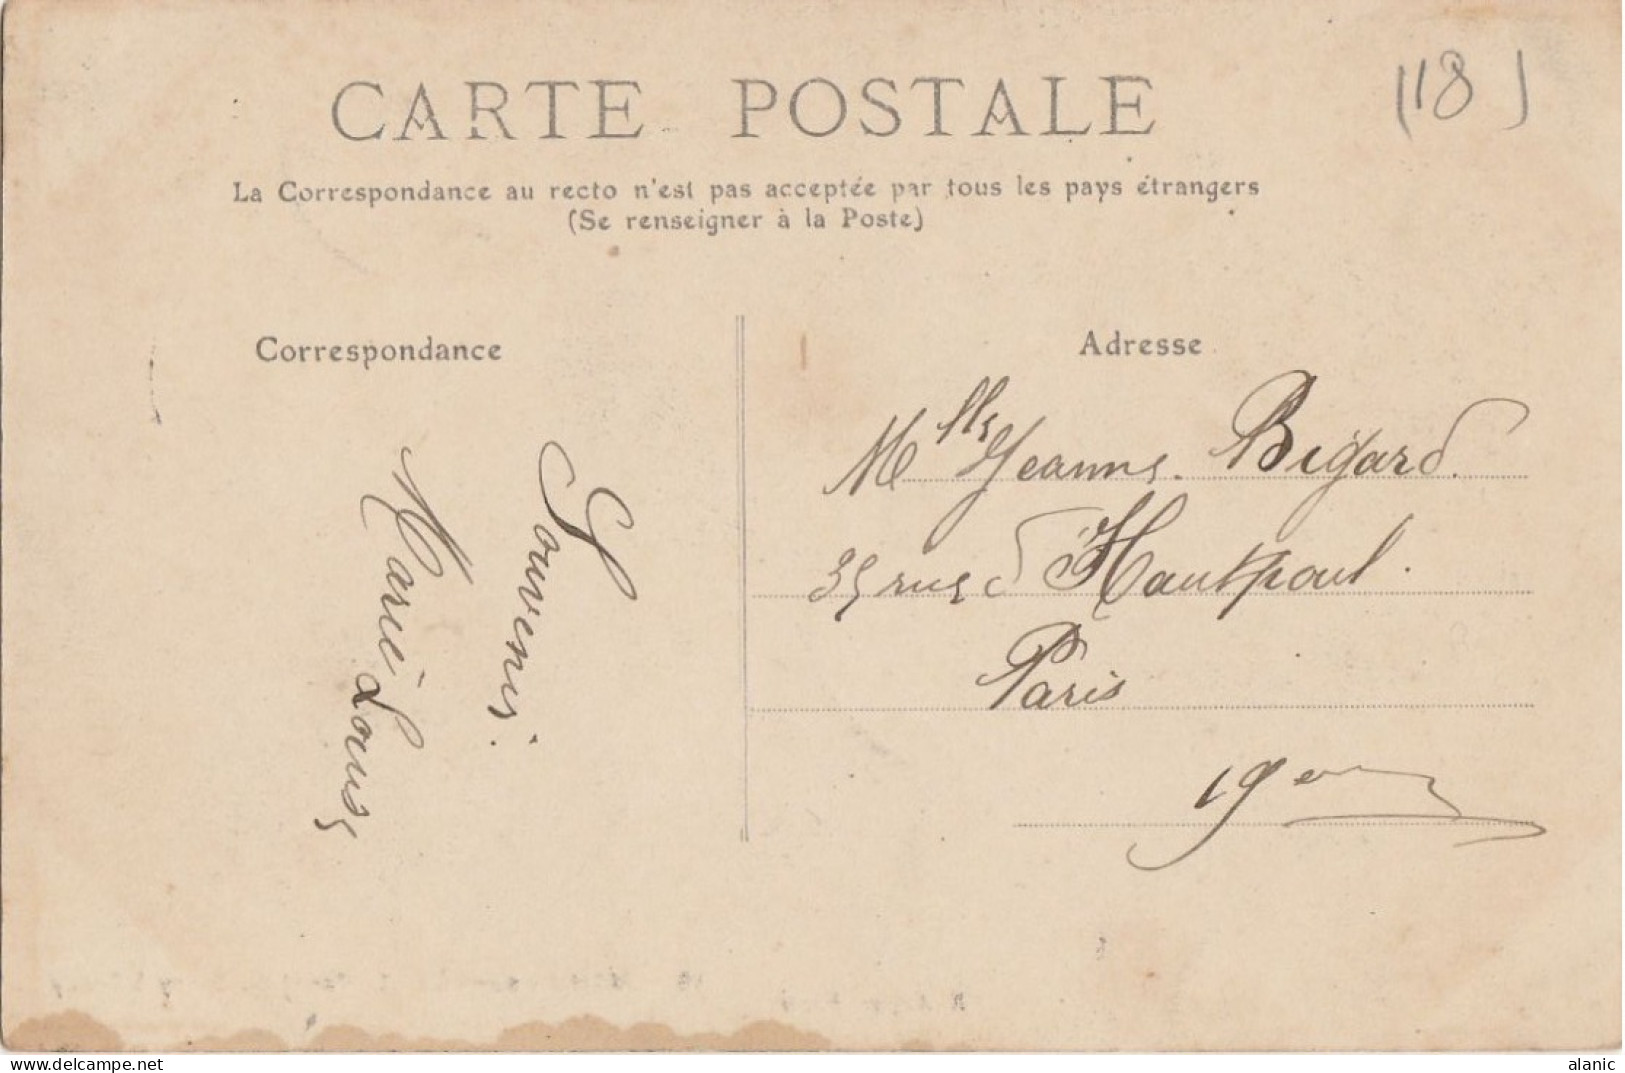 CARTE POSTALE
(18)
La Correspondance au recto n'est pas acceptée par tous les pays étrangers
(Se renseigner à la Poste)
Correspondance
Souvenir.
Marie Louise
Adresse
Mlle Jeanne Bigard.
35 rue d'Hautpoul.
Paris
19e
www.delcampe.net
alanic